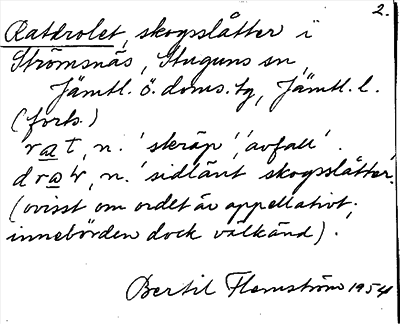 2.
Ratdrolet, skogsslåtter i
Strömsnäs, Stuguns sn,
Jämtl. ö. doms. tg, Jämtl. l.
(forts.)
rat, n. 'skräp', 'avfall'.
, n. 'sidlänt skogsslåtter'.
(ovisst om ordet är appellativt;
innebörden dock välkänd).
Bertil Flemström 1954